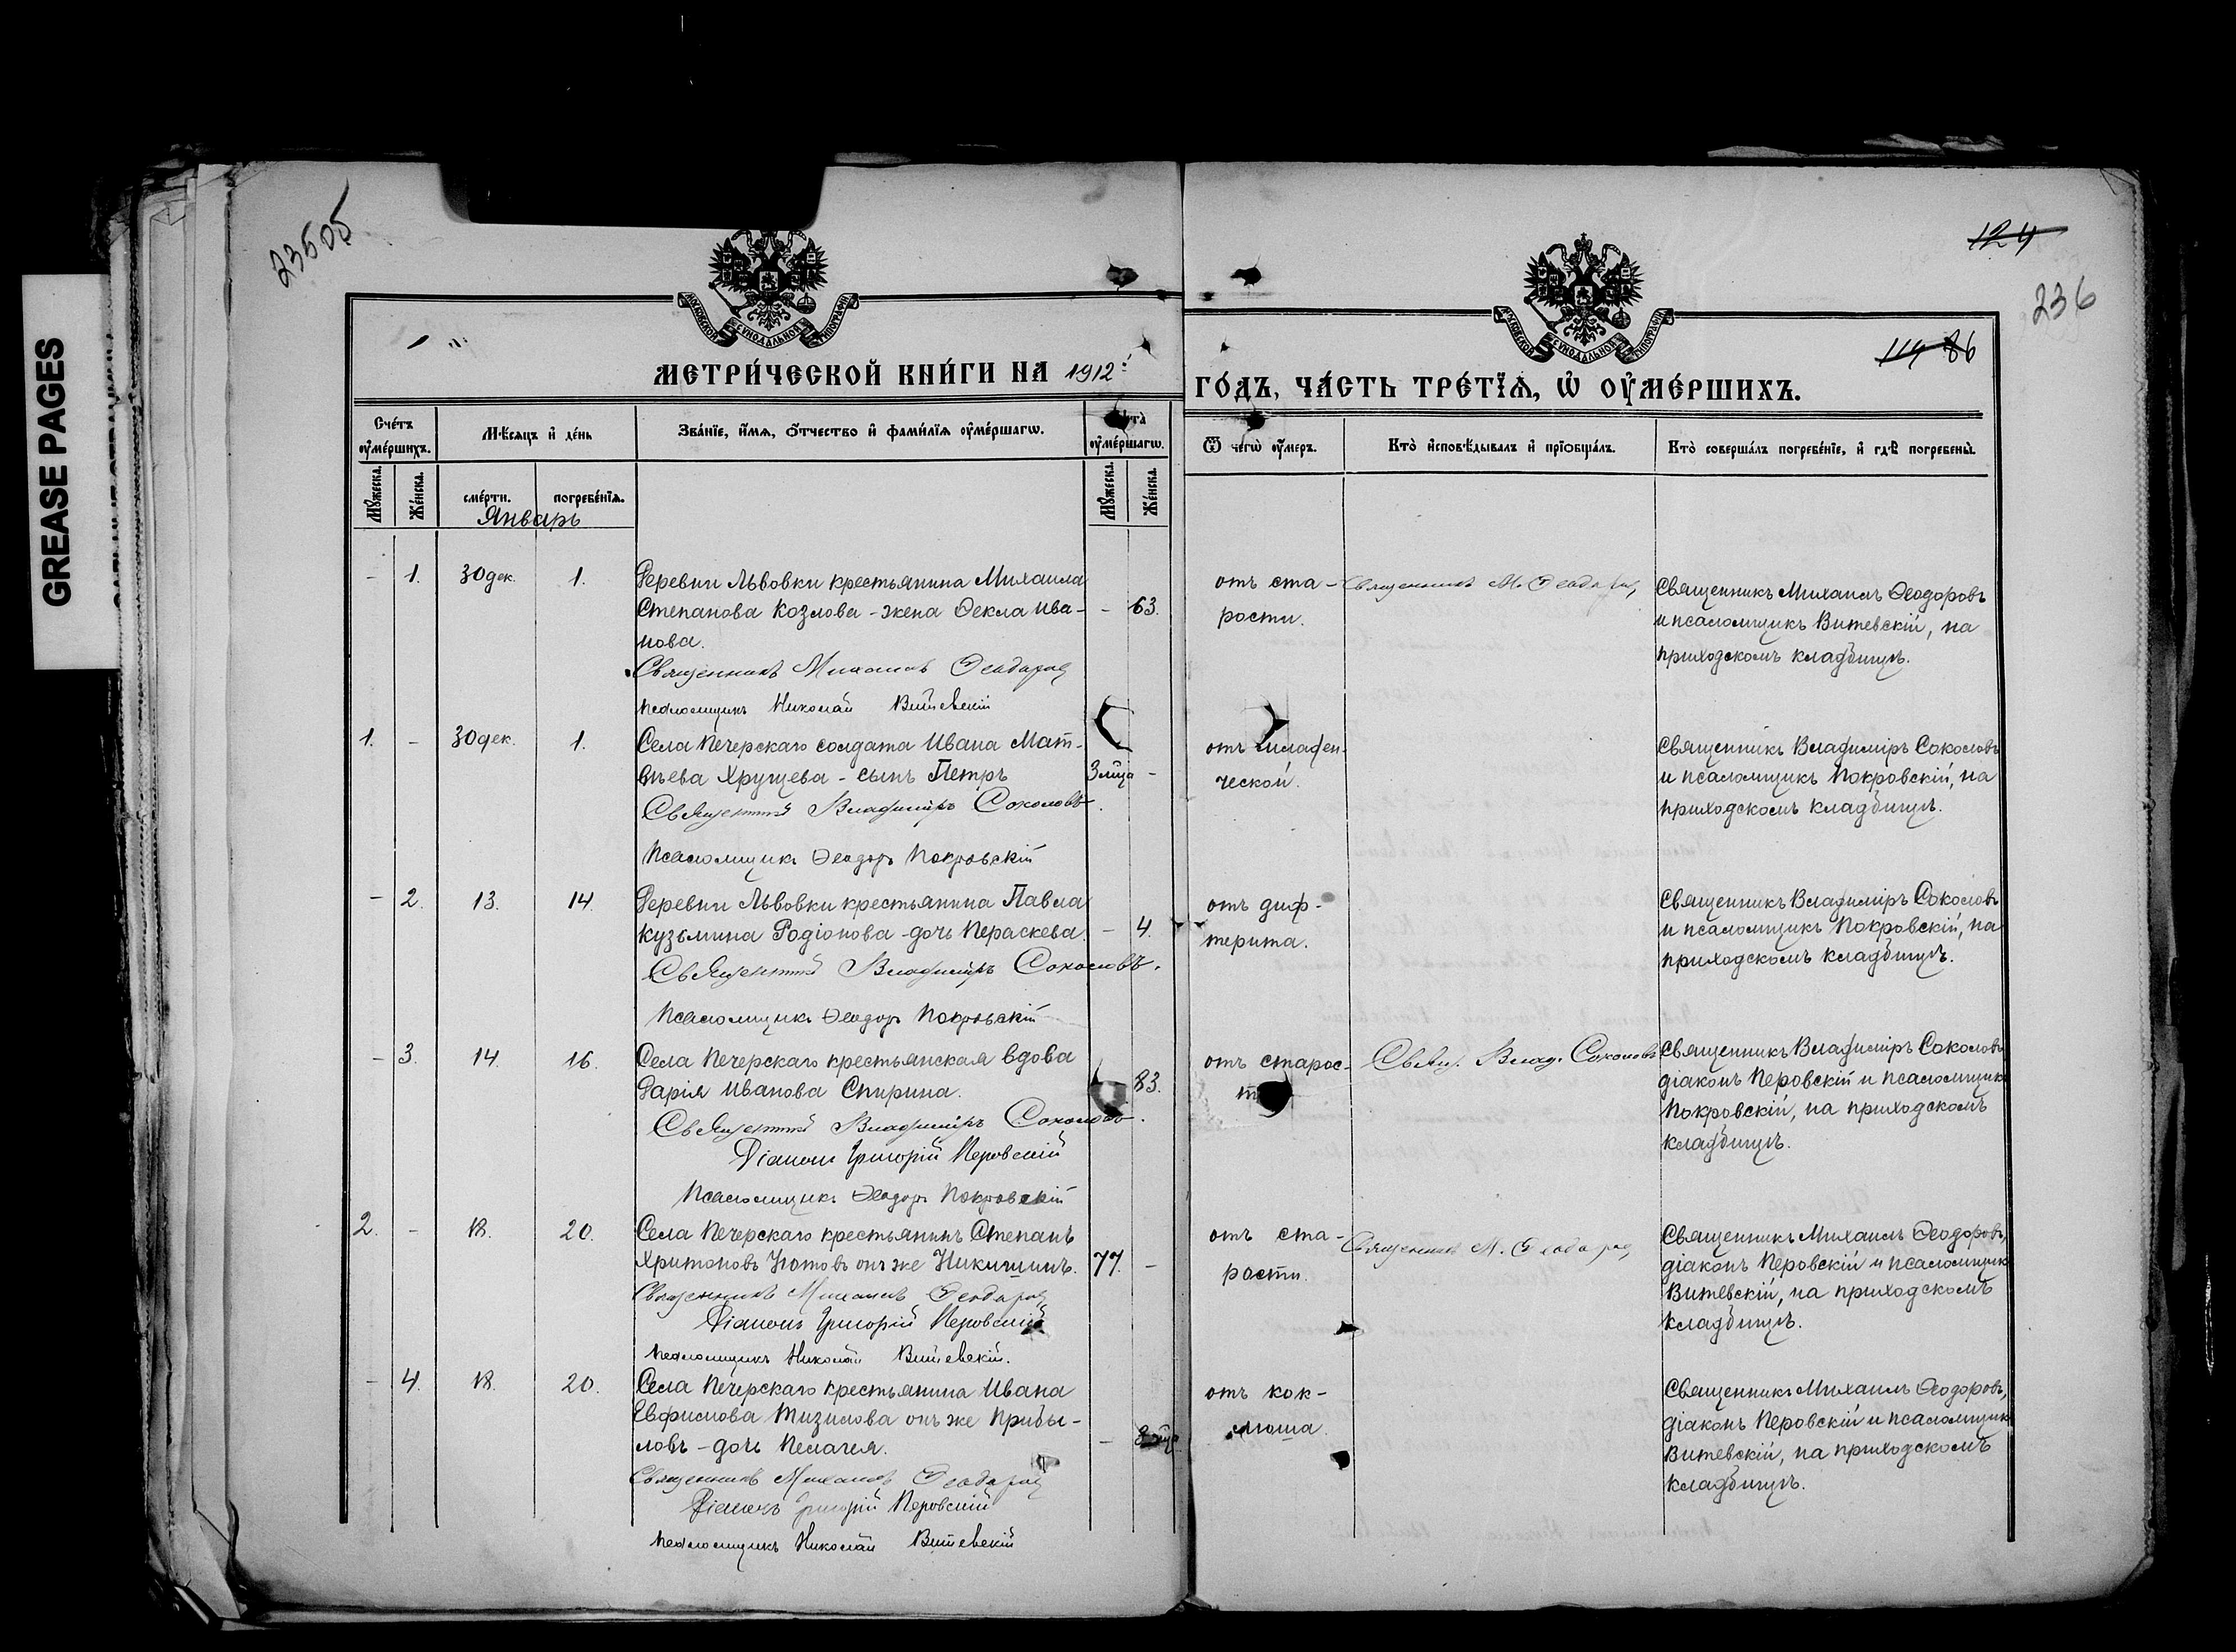 GREASE PAGES
23505
124
236
114 86
МЕТРИ́ЧЕСКОЙ КНИ́ГИ НА 1912й
ГО́ДЪ, ЧА́СТЬ ТРЕ́ТЇѦ, Ѡ҆ ОУ҆МЕ́РШИХЪ.
Сче́тъ оу҆ме́ршихъ.
Мѣ́сяцъ и҆ де́нь
Зва́нїе, и҆́мя, ѻ҆́тчество и҆ фами́лїя оу҆ме́ршагѡ.
оу҆ме́ршагѡ.
Ѿ чегѡ̀ оу҆́меръ.
Кто̀ и҆сповѣ́дывалъ и҆ прїѻбща́лъ.
Кто̀ соверша́лъ погребе́нїе, и҆ гдѣ̀ погребены̀.
Мꙋ́жеска.
Же́нска.
сме́рти.
погребе́нїя.
Мꙋ́жеска.
Же́нска.
Январь
- 1. 30 дек. 1. Деревни Львовки крестьянина Михаила
Степанова Козлова - жена Ѳекла Ива-
нова.
- 63.
Священникъ Михаилъ Ѳеодоровъ
Псаломщикъ Николай Витевскій
отъ ста-
рости.
Священникъ М. Ѳеодоровъ
Священникъ Михаилъ Ѳеодоровъ
и псаломщикъ Витевскій, на
приходскомъ кладбищѣ.
1. - 30 дек. 1. Села Печерскаго солдата Ивана Мат-
вѣева Хрущева - сынъ Петръ
3 мца -
Священникъ Владиміръ Соколовъ.
Псаломщикъ Ѳеодоръ Покровскій
отъ младен-
ческой.
Священникъ Владиміръ Соколовъ
и псаломщикъ Покровскій, на
приходскомъ кладбищѣ.
- 2. 13. 14. Деревни Львовки крестьянина Павла
Кузьмина Родіонова - дочь Пераскева.
- 4.
Священникъ Владиміръ Соколовъ.
Псаломщикъ Ѳеодоръ Покровскій
отъ диф-
терита.
Священникъ Владиміръ Соколовъ
и псаломщикъ Покровскій, на
приходскомъ кладбищѣ.
- 3. 14. 16. Села Печерскаго крестьянская вдова
Дарія Иванова Спирина.
83.
Священникъ Владиміръ Соколовъ.
Діаконъ Григорій Перовскій
Псаломщикъ Ѳеодоръ Покровскій
отъ старос-
Свящ. Влад. Соколовъ
Священникъ Владиміръ Соколовъ
діаконъ Перовскій и псаломщикъ
Покровскій, на приходскомъ
кладбищѣ.
2. - 18. 20. Села Печерскаго крестьянинъ Степанъ
Хритоновъ онъ же Никишинъ.
77. -
Священникъ Михаилъ Ѳеодоровъ
Діаконъ Григорій Перовскій
Псаломщикъ Николай Витевскій.
отъ ста-
рости.
Священникъ М. Ѳеодоровъ
Священникъ Михаилъ Ѳеодоровъ,
діаконъ Перовскій и псаломщикъ
Витевскій, на приходскомъ
кладбищѣ.
- 4. 18. 20. Села Печерскаго крестьянина Ивана
Евфимова онъ же Прибы-
ловъ - дочь Пелагея.
- 8 мца
Священникъ Михаилъ Ѳеодоровъ
Діаконъ Григорій Перовскій
Псаломщикъ Николай Витевскій
отъ кок-
люша.
Священникъ Михаилъ Ѳеодоровъ,
діаконъ Перовскій и псаломщикъ
Витевскій, на приходскомъ
кладбищѣ.